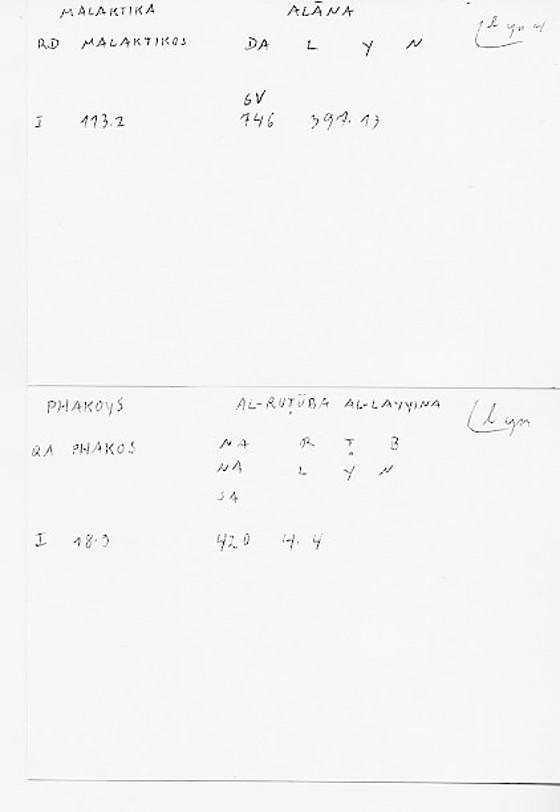 MALAKTIKA ALĀNA (lyn
RD MALAKTIKOS DA L Y N
GV
I 113.2 746 397.13
PHAKOYS AL-RUṬŪBA AL-LAYYINA (lyn
QA PHAKOS NA R Ṭ B
NA L Y N
SA
I 18.9 420 4.4